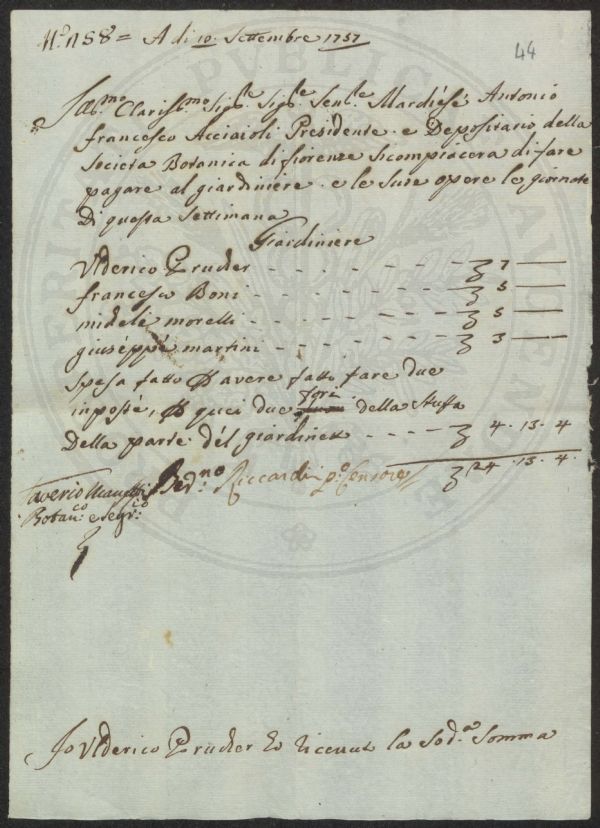 N.º 158 = A di 10 Settembre 1757
44
Ill.mo Clariss.mo Sig.re Sig.re Marchése Antonio
francesco Acciaioli Presidente e Depositario della
Societa Botanica di fiorenze Si compiacera di fare
pagare al giardiniere e le sue opere le giornate
Di questa Settimana
Giardiniere
Vlderico Prucker - - - - - - - 7 —
francesco Boni - - - - - - - 5 —
michele morelli - - - - - - - 5 —
giuséppe martini - - - - - - - 3 —
Spesa fatto P avere fatto fare due
fori
inposte, P quei due della Stufa
Della parte dél giardinett - - - - 4 . 13 . 4
Saverio Manetti Ferd.no Riccardi p.º Censore 24 . 13 . 4
Botan.co e Segr.co
Jo Vlderico Prucker ho riceuut la Sod.a Somma